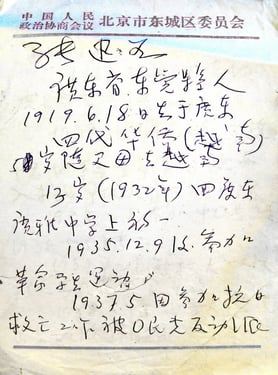 中国人民
政治协商会议 北京市东城区委员会
张
广东省东莞县人
1919.6.18日生于广东
四代华侨(越南)
岁随父回去越南
13岁(1932年)回广东
读 中学上初一
1935.12.9后参加
革命学生运动
1937.5因参加抗日
救亡工作被国民党反动